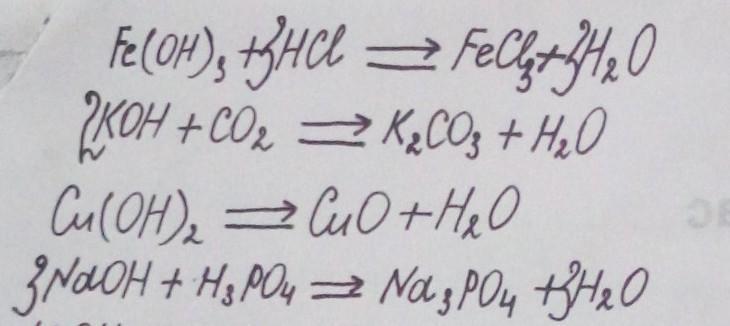 Fe(OH)₃ + 3HCl ⇒ FeCl₃ + 3H₂O
2KOH + CO₂ ⇒ K₂CO₃ + H₂O
Cu(OH)₂ ⇒ CuO + H₂O
3NaOH + H₃PO₄ ⇒ Na₃PO₄ + 3H₂O